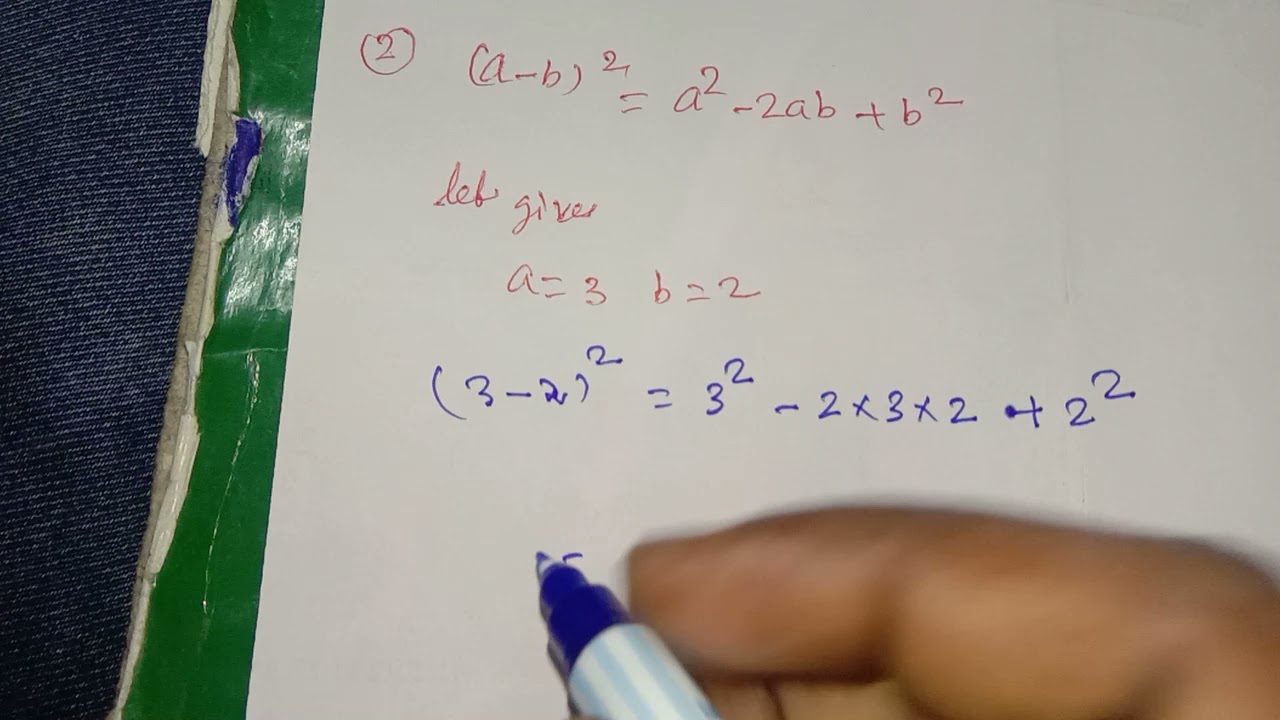 ② (a-b)² = a² - 2ab + b²
let given
a = 3 b = 2
(3-2)² = 3² - 2×3×2 + 2²